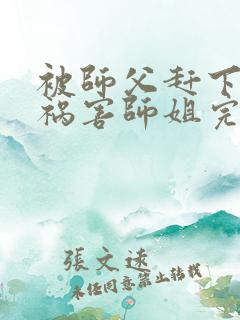 被師父赶下
祸害師姐完
張文逺
未经同意禁止转载